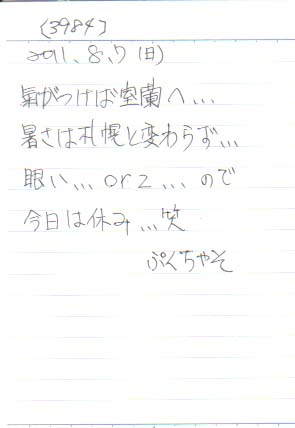 [3984]
2011.8.7(日)
気がつけば室蘭へ...
暑さは札幌と変わらず...
眠い...orz...ので
今日は休み...笑
ぷくちゃそ